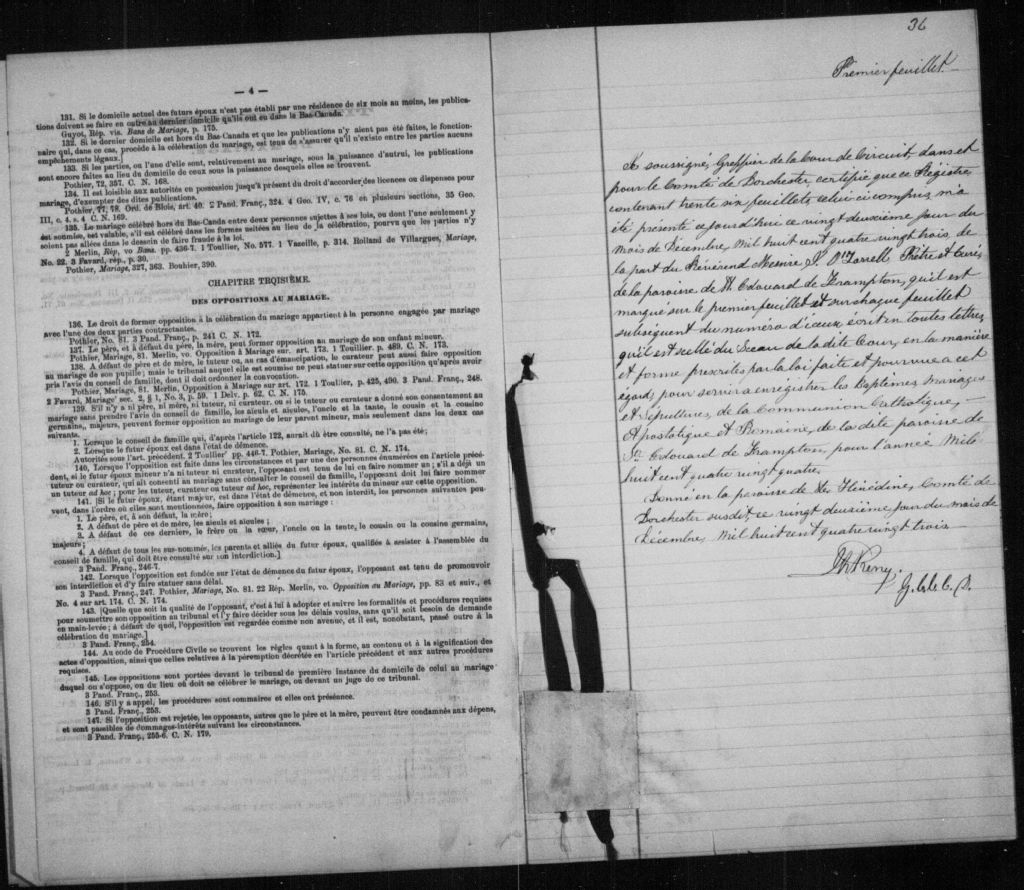 — 4 —
131. Si le domicile actuel des futurs époux n'est pas établi par une résidence de six mois au moins, les publica-
tions doivent se faire en outre au dernier domicile qu'ils ont eu dans le Bas-Canada.
Guyot, Rép. vis. Bans de Mariage, p. 175.
132. Si le dernier domicile est hors du Bas-Canada et que les publications n'y aient pas été faites, le fonction-
naire qui, dans ce cas, procède à la célébration du mariage, est tenu de s'assurer qu'il n'existe entre les parties aucuns
empêchements légaux.]
133. Si les parties, ou l'une d'elle sont, relativement au mariage, sous la puissance d'autrui, les publications
sont encore faites au lieu du domicile de ceux sous la puissance desquels elles se trouvent.
Pothier, 72, 357. C. N. 168.
134. Il est loisible aux autorités en possession jusqu'à présent du droit d'accorder des licences ou dispenses pour
mariage, d'exempter des dites publications.
Pothier, 77, 78. Ord. de Blois, art. 40. 2 Pand. Franç., 324. 4 Geo. IV, c. 76 en plusieurs sections, 35 Geo.
III, c. 4. s. 4 C. N. 169.
135. Le mariage célébré hors du Bas-Canda entre deux personnes sujettes à ses lois, ou dont l'une seulement y
est soumise, est valable, s'il est célébré dans les formes usitées au lieu de la célébration, pourvu que les parties n'y
soient pas allées dans le dessein de faire fraude à la loi.
2 Merlin, Rép, vo Bans. pp. 436-7. 1 Toullier, No. 577. 1 Vazeille, p. 314. Rolland de Villargues, Mariage,
No. 22. 3 Favard, rép., p. 30.
Pothier, Mariage, 327, 363. Bouhier, 390.
CHAPITRE TROISIÈME.
DES OPPOSITIONS AU MARIAGE.
136. Le droit de former opposition à la célébration du mariage appartient à la personne engagée par mariage
avec l'une des deux parties contractantes.
Pothier, No. 81. 3 Pand. Franç., p. 241 C. N. 172.
137. Le père, et à défaut du père, la mère, peut former opposition au mariage de son enfant mineur.
Pothier, Mariage, 81. Merlin, vo. Opposition à Mariage sur. art. 173. 1 Toullier. p. 489. C. N. 173.
138. A défaut de père et de mère, le tuteur ou, au cas d'émancipation, le curateur peut aussi faire opposition
au mariage de son pupille; mais le tribunal auquel elle est soumise ne peut statuer sur cette opposition qu'après avoir
pris l'avis du conseil de famille, dont il doit ordonner la convocation.
Pothier, Mariage, 81. Merlin, Opposition à Mariage sur art. 172. 1 Toullier, p. 425, 490. 3 Pand. Franç., 248.
2 Favard, Mariage' sec. 2, § 1, No. 3, p. 59. 1 Delv. p. 62. C. N. 175.
139. S'il n'y a ni père, ni mère, ni tuteur, ni curateur, ou si le tuteur ou curateur a donné son consentement au
mariage sans prendre l'avis du conseil de famille, les aïeuls et aïeules, l'oncle et la tante, le cousin et la cousine
germains, majeurs, peuvent former opposition au mariage de leur parent mineur, mais seulement dans les deux cas
suivants.
1. Lorsque le conseil de famille qui, d'après l'article 122, aurait dû être consulté, ne l'a pas été;
2. Lorsque le futur époux est dans l'état de démence.
Autorités sous l'art. précédent. 2 Toullier' pp. 446-7. Pothier, Mariage, No. 81. C. N. 174.
140. Lorsque l'opposition est faite dans les circonstances et par une des personnes énumérées en l'article précé-
dent, si le futur époux mineur n'a ni tuteur ni curateur, l'opposant est tenu de lui en faire nommer un; s'il a déjà un
tuteur ou curateur, qui ait consenti au mariage sans consulter le conseil de famille, l'opposant doit lui faire nommer
un tuteur ad hoc; pour les tuteur, curateur ou tuteur ad hoc, représenter les intérêts du mineur sur cette opposition.
141. [Si le futur époux, étant majeur, est dans l'état de démence, et non interdit, les personnes suivantes peu-
vent, dans l'ordre où elles sont mentionnées, faire opposition à son mariage:
1. Le père, et, à son défaut, la mère;
2. A défaut de père et de mère, les aïeuls et aïeules;
3. A défaut de ces derniers, le frère ou la sœur, l'oncle ou la tante, le cousin ou la cousine germains,
majeurs;
4. A défaut de tous les sus-nommés, les parents et alliés du futur époux, qualifiés à assister à l'assemblée du
conseil de famille, qui doit être consulté sur son interdiction.]
3 Pand. Franç., 246-7.
142. Lorsque l'opposition est fondée sur l'état de démence du futur époux, l'opposant est tenu de promouvoir
son interdiction et d'y faire statuer sans délai.
3 Pand. Franç., 247. Pothier, Mariage, No. 81. 22 Rép. Merlin, vo. Opposition au Mariage, pp. 83 et suiv., et
No. 4 sur art. 174. C. N. 174.
143. [Quelle que soit la qualité de l'opposant, c'est à lui à adopter et suivre les formalités et procédures requises
pour soumettre son opposition au tribunal et l'y faire décider sous les délais voulus, sans qu'il soit besoin de demande
en main-levée; à défaut de quoi, l'opposition est regardée comme non avenue, et il est, nonobstant, passé outre à la
célébration du mariage.]
3 Pand. Franç., 254.
144. Au code de Procédure Civile se trouvent les règles quant à la forme, au contenu et à la signification des
actes d'opposition, ainsi que celles relatives à la péremption décrétée en l'article précédent et aux autres procédures
requises.
145. Les oppositions sont portées devant le tribunal de première instance du domicile de celui au mariage
duquel on s'oppose, ou du lieu où doit se célébrer le mariage, ou devant un juge de ce tribunal.
3 Pand. Franç., 253.
146. S'il y a appel, les procédures sont sommaires et elles ont préséance.
3 Pand. Franç., 253.
147. Si l'opposition est rejetée, les opposants, autres que le père et la mère, peuvent être condamnés aux dépens,
et sont passibles de dommages-intérêts suivant les circonstances.
3 Pand. Franç., 255-6. C. N. 179.
36
Premier feuillet
Je soussigné, Greffier de la Cour de Circuit, dans et
pour le Comté de Dorchester, certifie que ce Régistre,
contenant trente six feuillets, celui-ci compris, m'a
été présenté ce jourd'hui ce vingt deuxième jour du
mois de Décembre, Mil huit cent quatre vingt trois, de
la part du Révérend Messire Prêtre et Curé,
de la paroisse de St. Edouard de Frampton, qu'il est
marqué sur le premier feuillet et sur chaque feuillet
subséquent du numéro d'iceux écrit en toutes lettres,
qu'il est scellé du Sceau de la dite Cour, en la manière
et forme prescrites par la loi faite et pourvue a cet
égard, pour servir a enregistrer les Baptêmes, Mariages
et Sépultures, de la Communion Catholique,
Apostolique et Romaine, de la dite paroisse de
St. Edouard de Frampton, pour l'année Mil
huit cent quatre vingt quatre,
Donné en la paroisse de Ste Hénédine, Comté de
Dorchester susdit, ce vingt deuxième jour du mois de
Décembre, Mil huit cent quatre vingt trois
G. C. C. C. D.